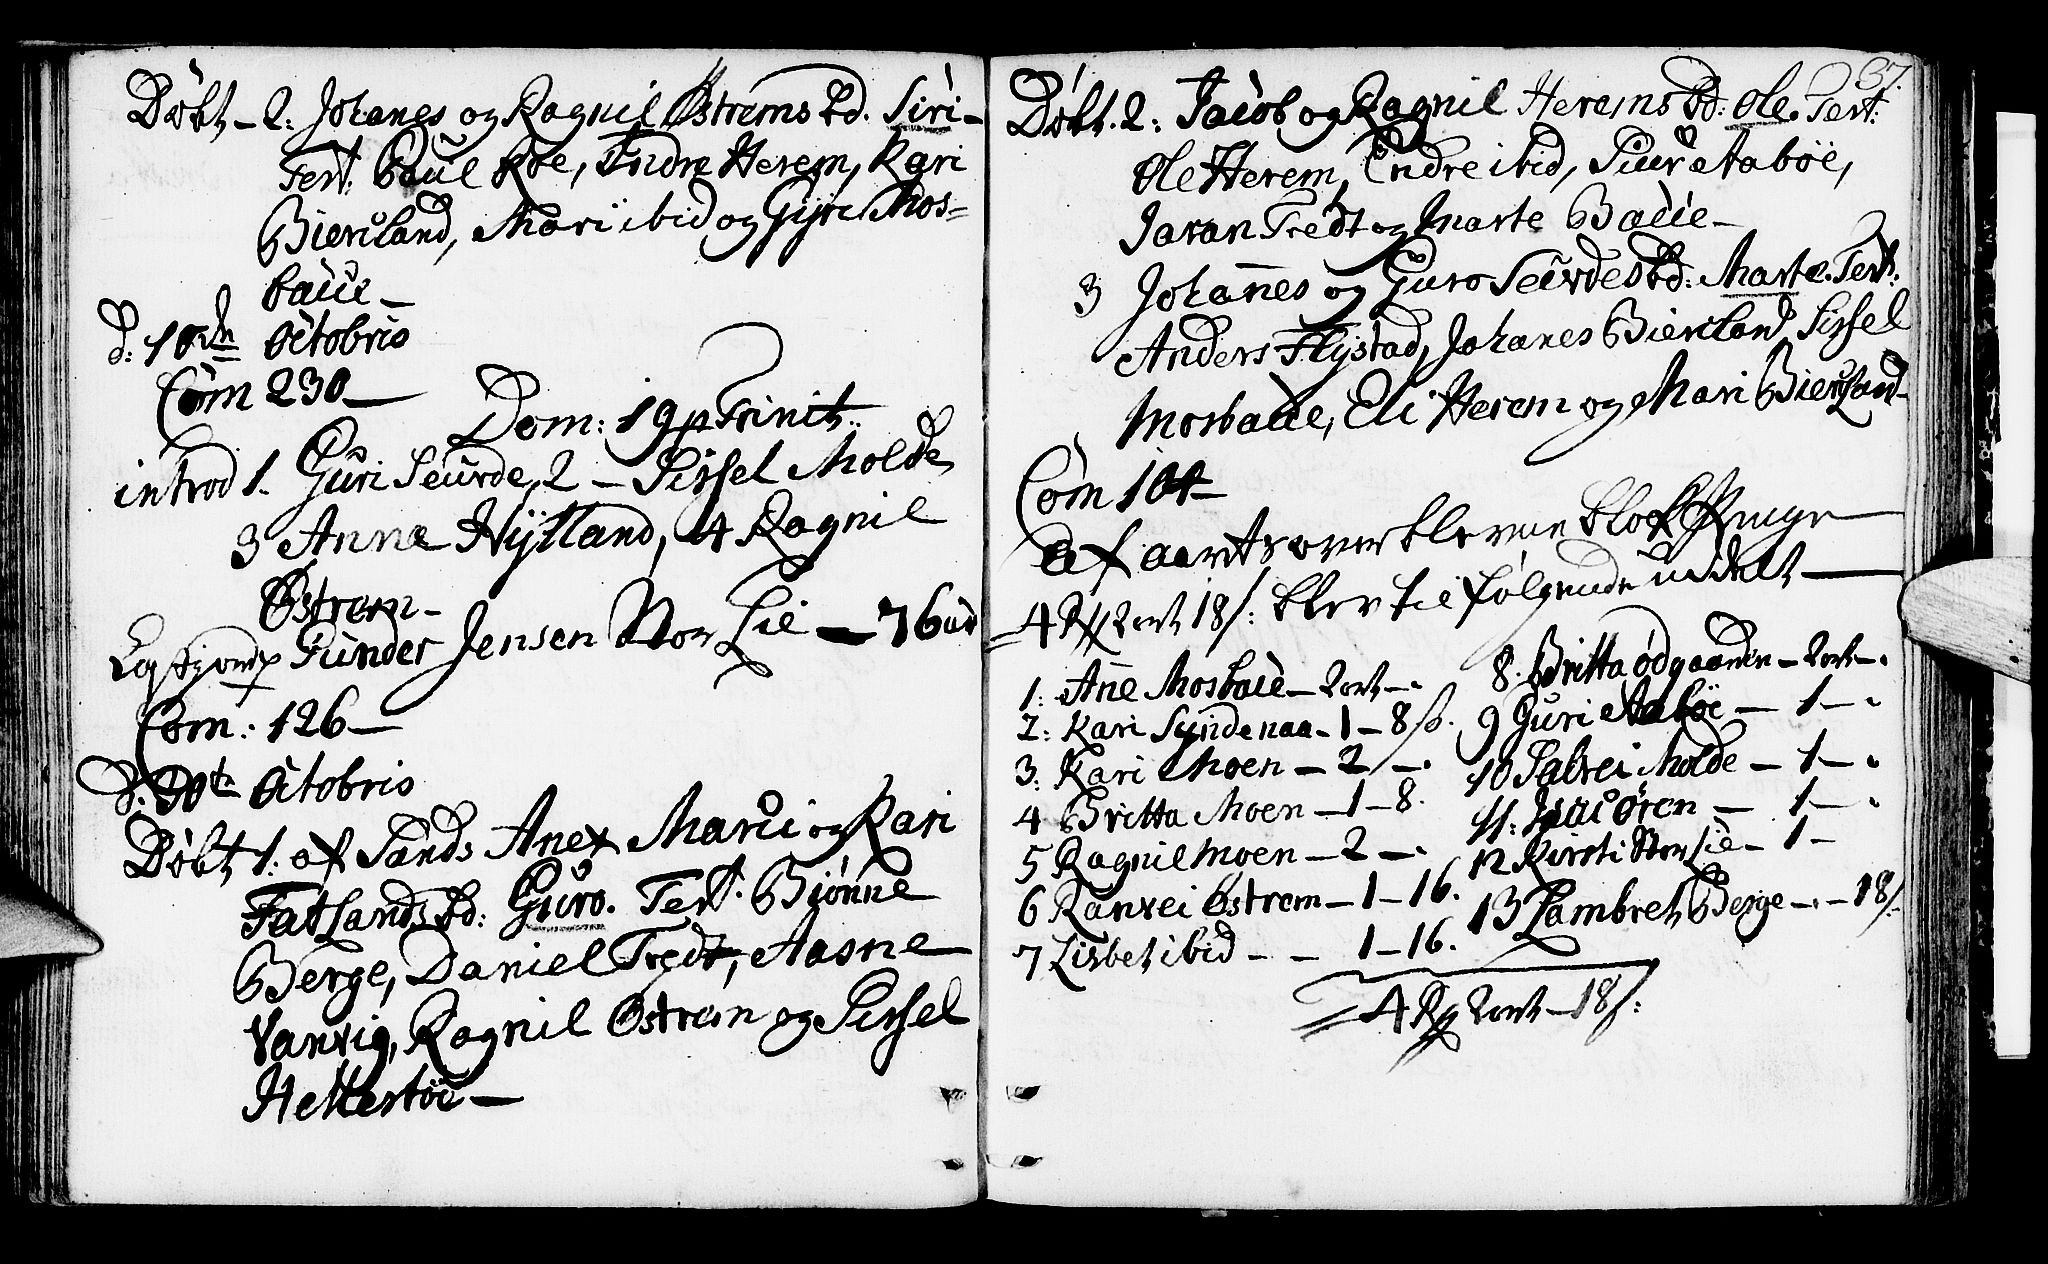 Döbt - 2: Johanes og Ragnil Østrems bd. Siri -
Test: Paul Roe, Endre Herem, Kari
Bierland, Mari ibid og Gyri Mos=
baue -
d: 10de Octobris
Com 230 -
Dom: 19 p Trinit:
introd 1. Guri Seurde, 2 - Sissel Molde
3 Anna Nÿtland, 4 Ragnil
Østrem -
Gunder Jensen Nor Lie - 76
Com: 126 -
d: 30te Octobris
Döbt 1: af Sands Anex Marti og Kari
Fatlands bd: Guro. Test: Biönne
Berge, Daniel Tredt, Aasne
Vanvig, Ragnil Østrem og Sissel
Hettestöe -
37.
Döbt. 2: Jacob og Ragnil Herems bd: Ole. Test:
Ole Herem, Endre ibid, Siur Aaböe,
Javan Tredt og Marte Baue -
3 Johannes og Guro Seurdes bd: Marte. Test:
Anders Flÿstad, Johanes Bierland, Sissel
Mosbaue, Eli Herem og Mari Bierland -
Com 104 -
af aarets overblevne blok Penge
4 Rd 2 ort 18 s: blev til følgende uddelt
1: Ane Mosbaue - 2 ort - "
2: Kari Syndenaa - 1 - 8 s.
3: Kari Moen - 2 - "
4 Britta Moen - 1 - 8.
5 Ragnil Moen - 2 - "
6 Ranvei Østrem - 1 - 16.
7 Lisbet ibid - - 1 - 16.
8. Britta ødgaarden - 2 ort - "
9 Guri Aaböe - 1 - "
10 Salvei Molde - 1 - "
11: Isac Ören - 1 - "
12 Kirsti Nor Lie - 1 -
13 Lambret Berge - " - 18 s:
4 Rd 2 ort - 18 s: